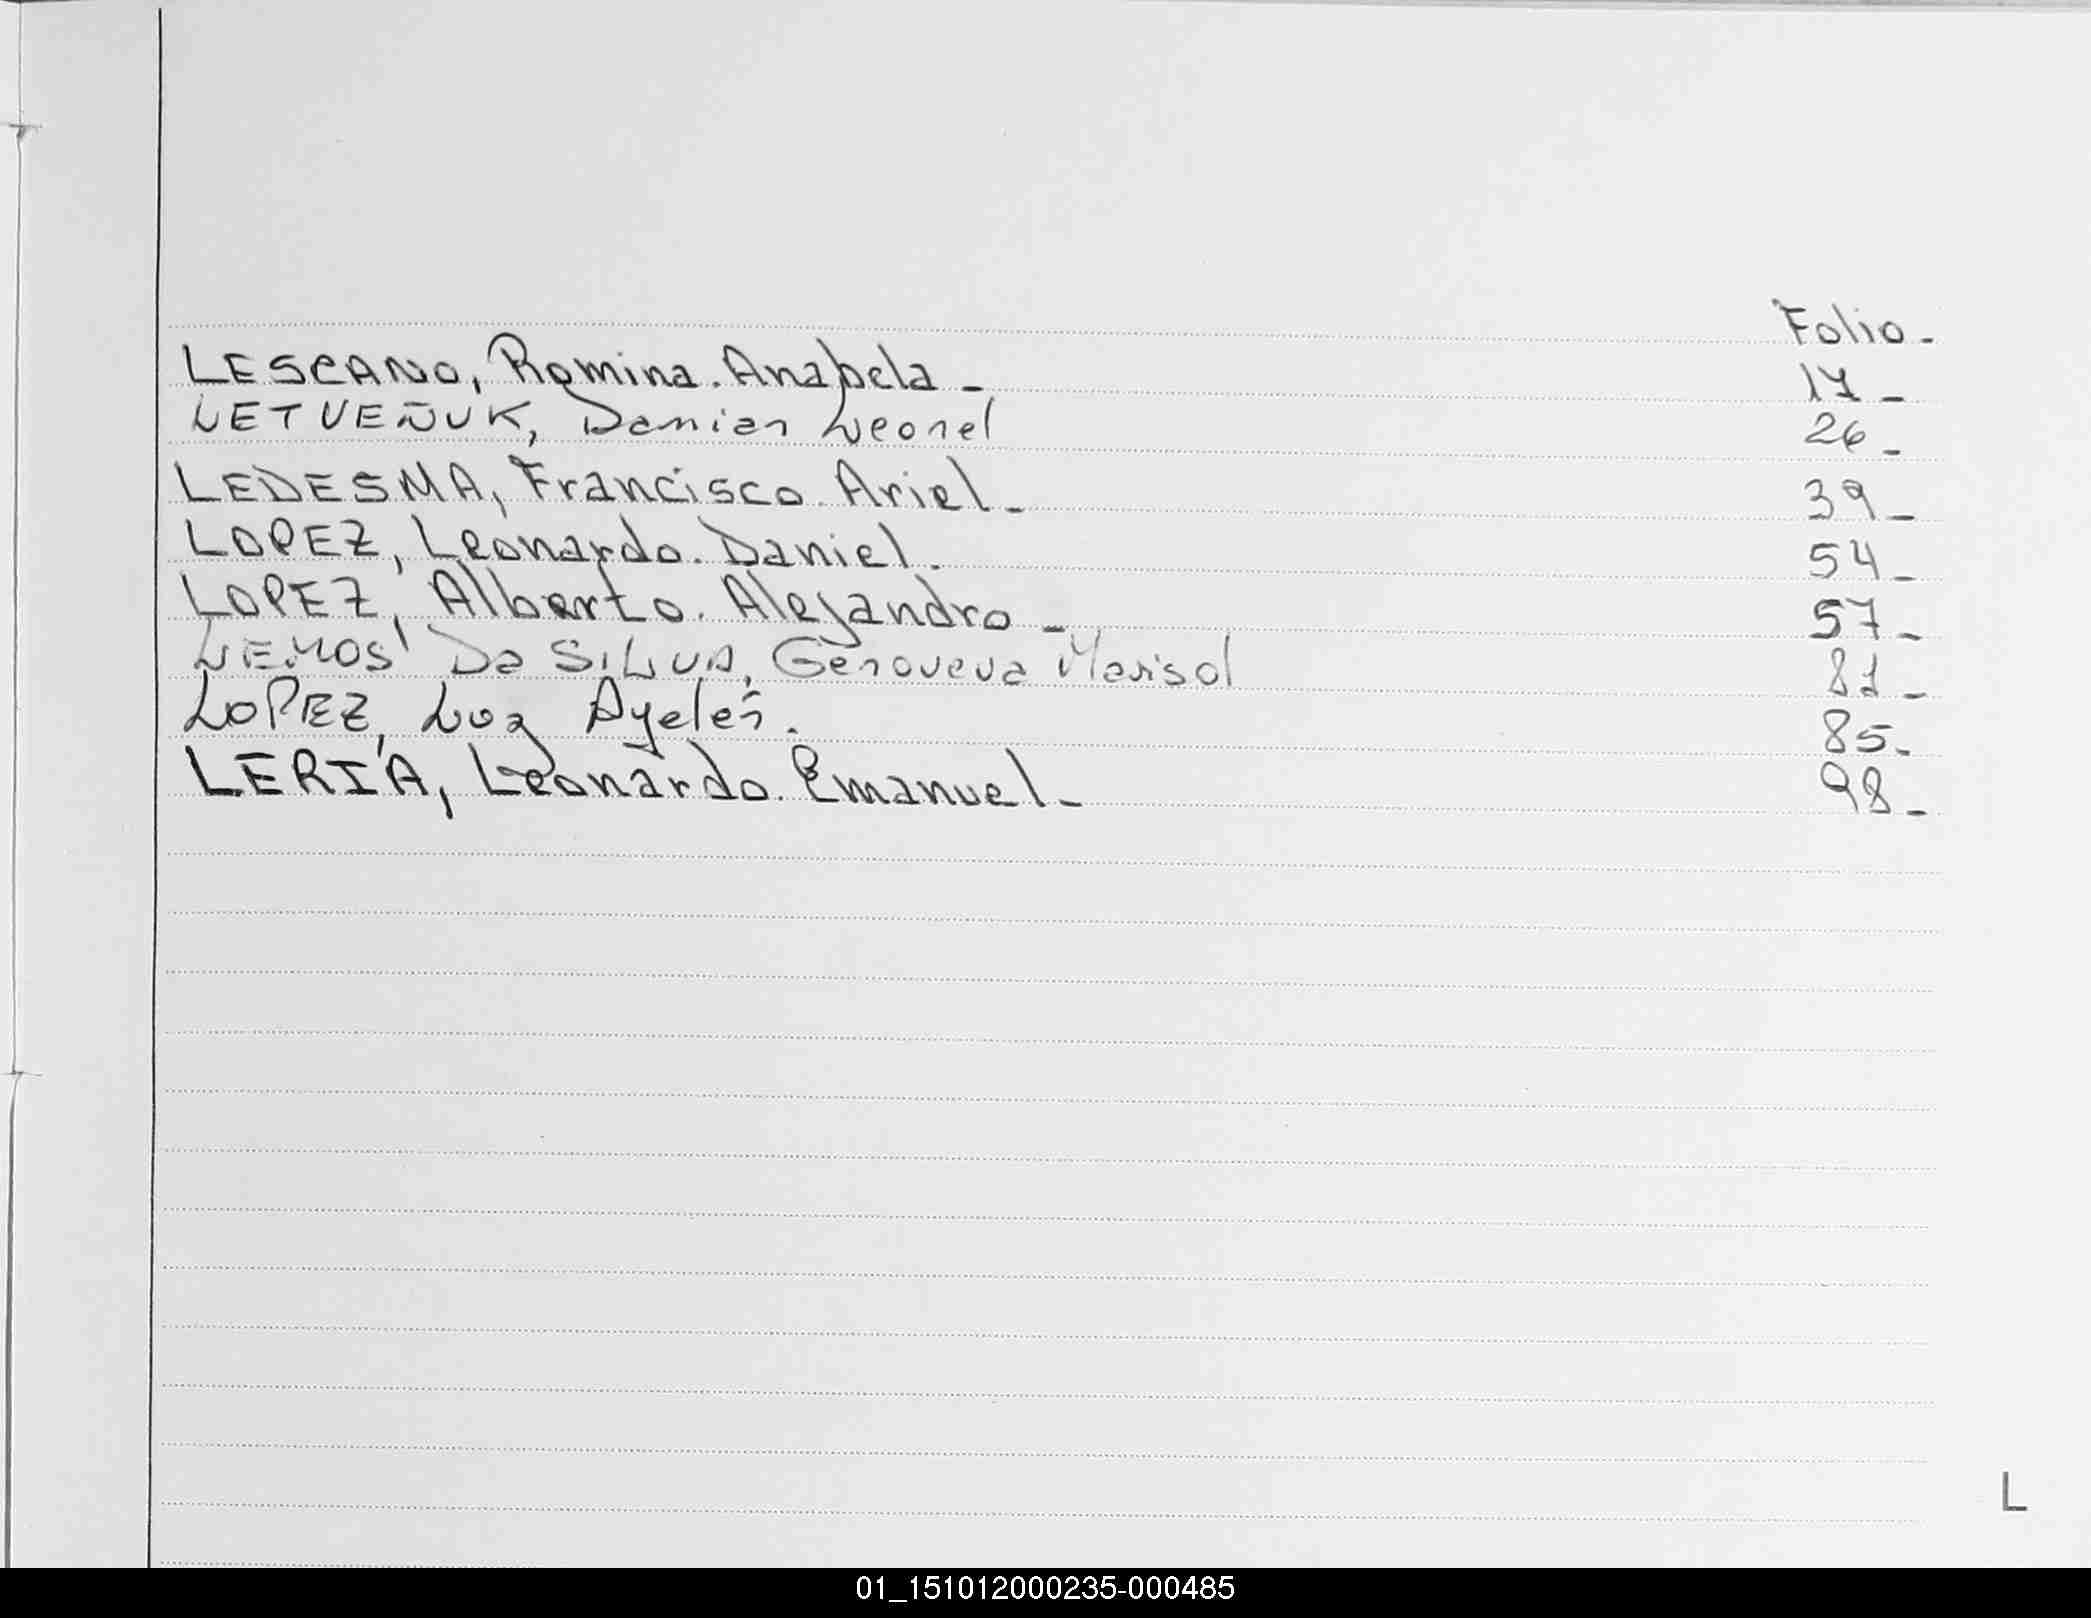 Folio -
LESCANO, Romina. Anabela - 17 -
LETVEÑUK, Damian Leonel 26 -
LEDESMA, Francisco. Ariel - 39 -
LOPEZ, Leonardo. Daniel. 54 -
LOPEZ, Alberto. Alejandro - 57 -
LEMOS Da SILVA, Genoveva Marisol 81 -
LOPEZ, Luz Ayelén. 85 -
LERIA, Leonardo. Emanuel - 98 -
L
01_151012000235-000485